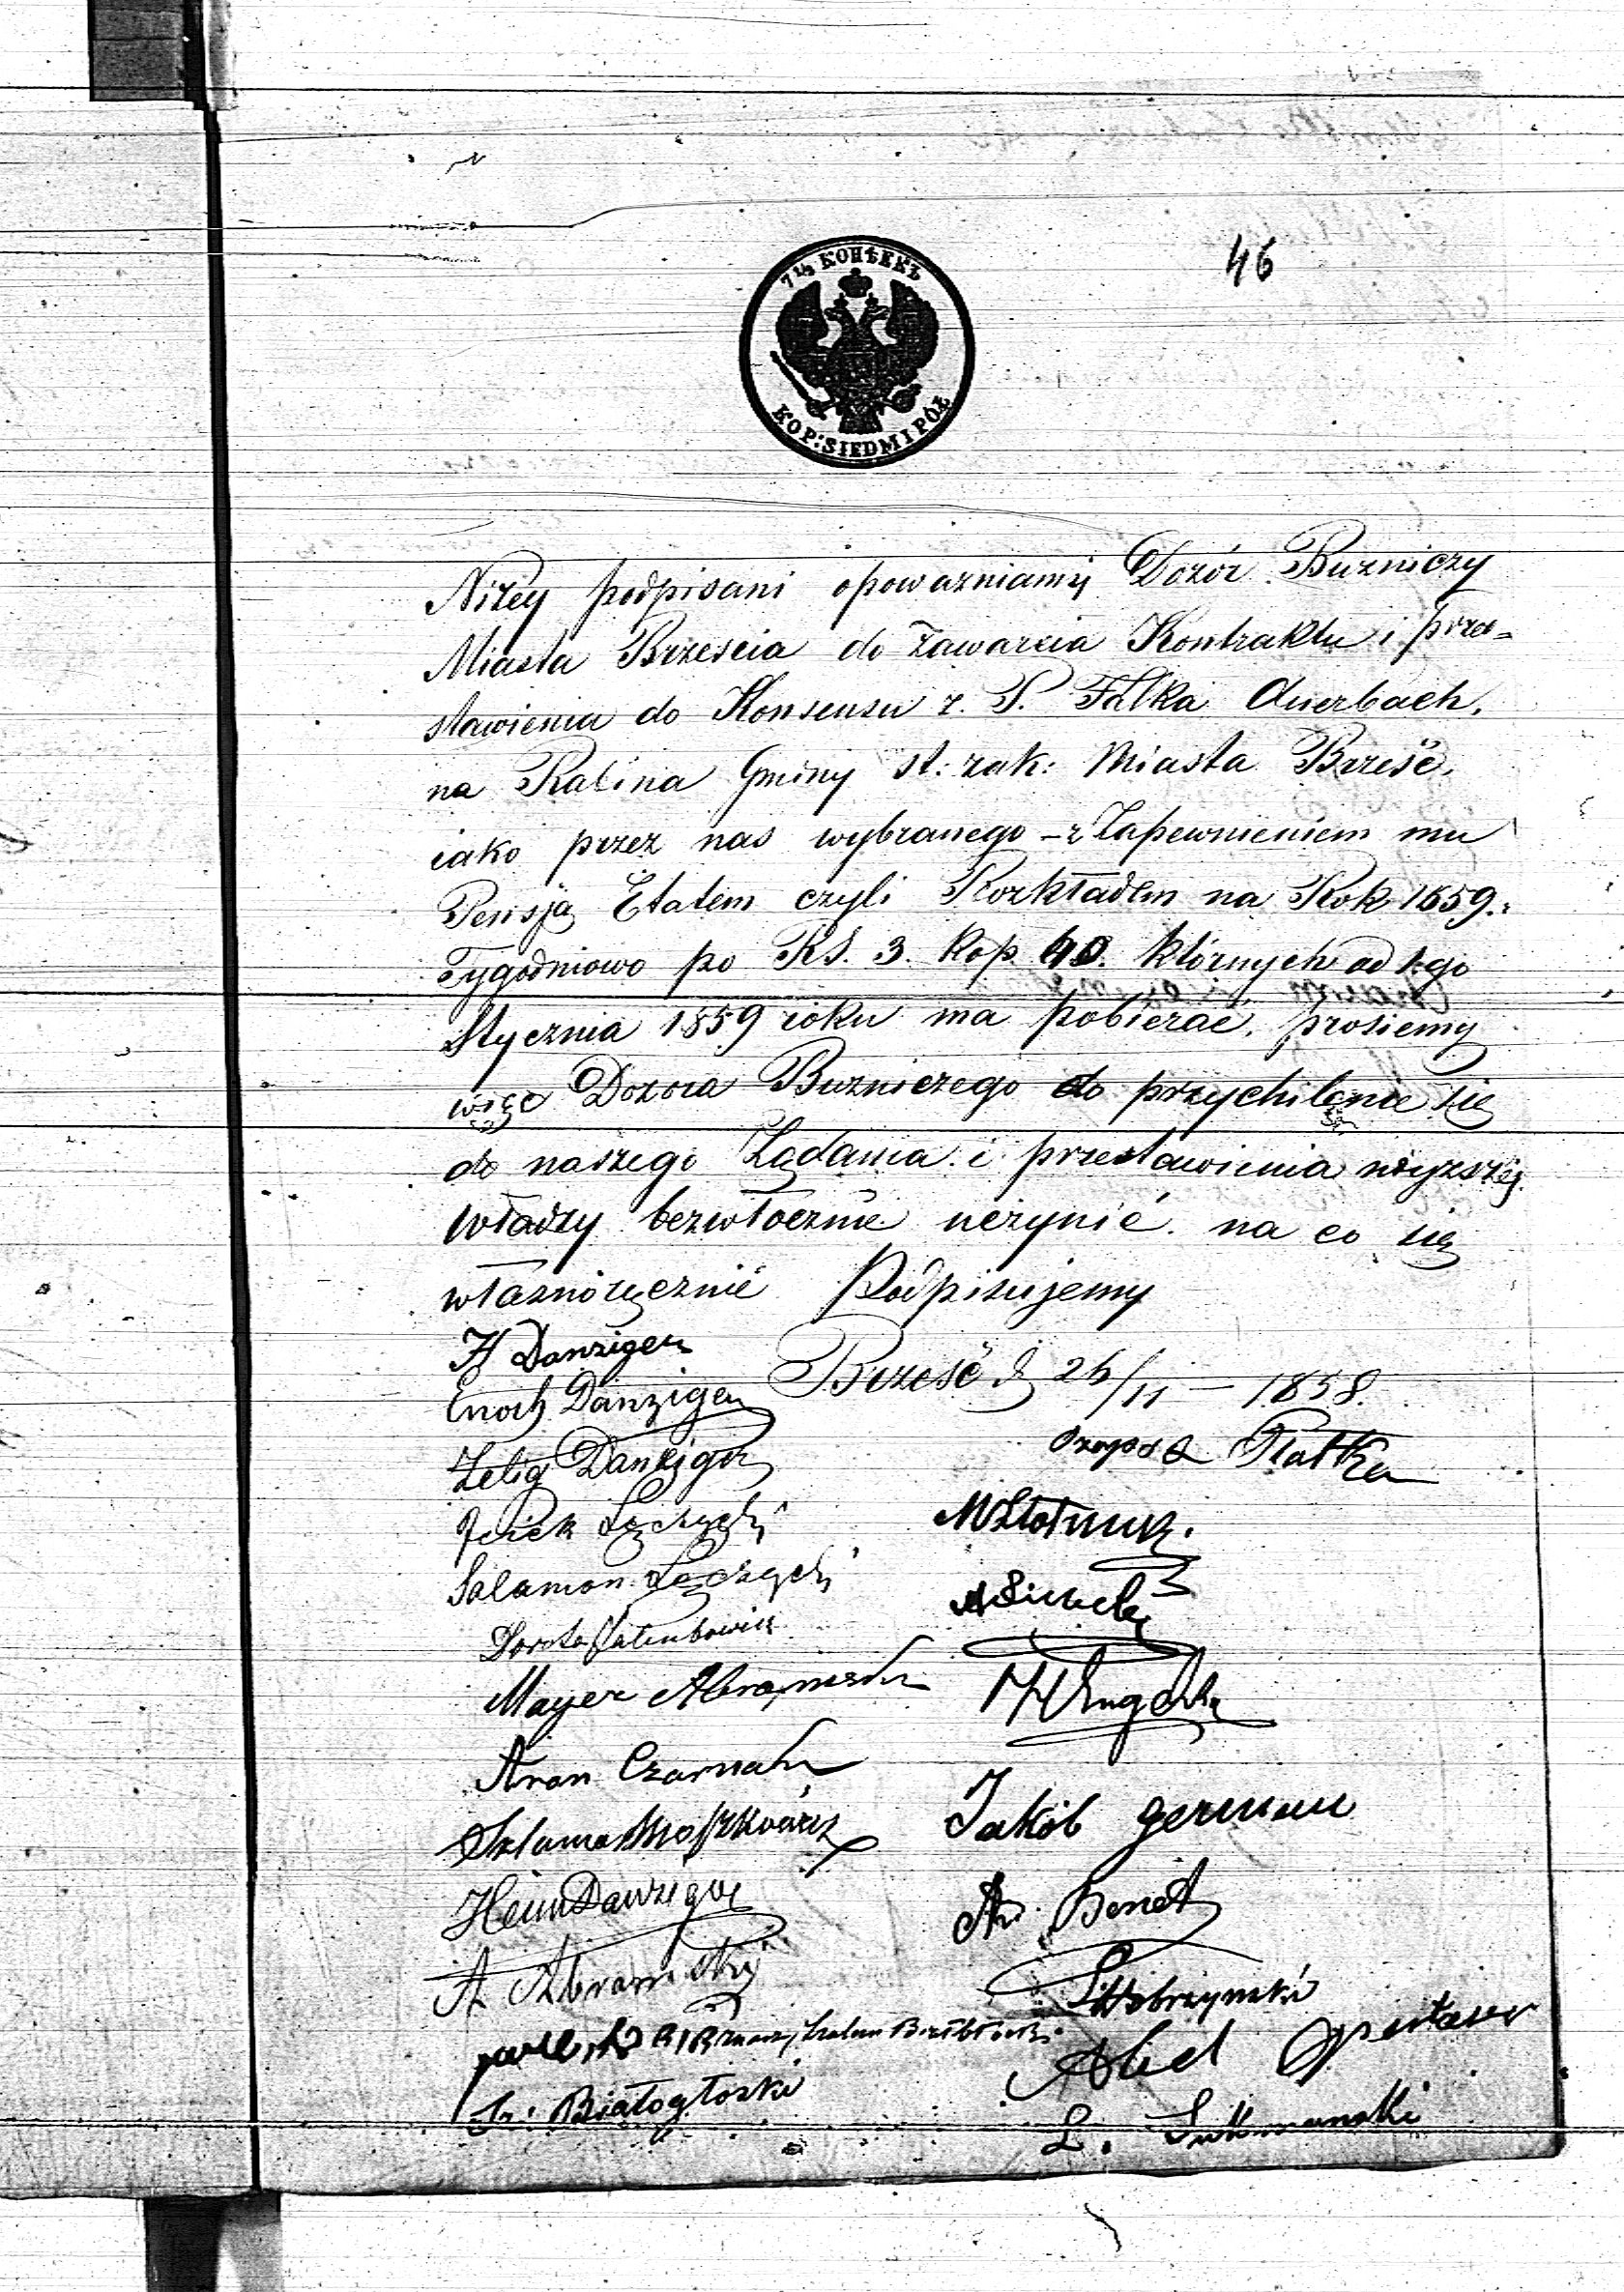 46
7½ КОПѢЕКЪ
KOP: SIEDM I PÓŁ
Niżey podpisani opoważniamy Dozór Bużniczy
Miasta Brześcia do Zawarcia Kontraktu i przed=
stawienia do Konsensu z. P. Falka Auerbach.
na Rabina Gminy st: zak: Miasta Brześć,
iako przez nas wybranego – z Zapewnieniem mu
Pensją Etatem czyli Rozkładem na Rok 1859.
Tygodniowo po RS. 3. kop. 40. którnych od 1.go
Stycznia 1859 roku ma pobierać. prosiemy
więc Dozora Bużniczego do przychilenie się
do naszego Żądania i przestawienia wyzszej
władzy bezwłocznie uczynić. na co się
własnoręcznie Podpisujemy
Brześć d 26/11 – 1858.
H Danziger
Enoch Danziger
Zelig Danziger
Płatka
Icek Łęczycki
Salamon Łęczycki
Mayer
Aron Czarnab
Jakób german
Szlama Moszkowicz
Heim Danziger
A. Benet
A Abramski
Dobrzynski
Abel
Białogłoski
L.